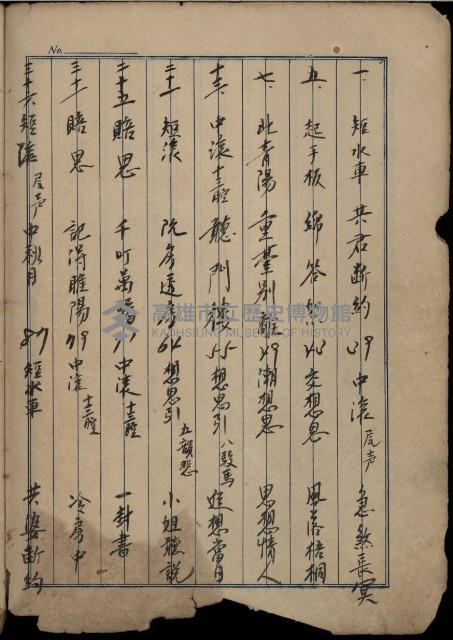 No.
一、短水車 共君断約 39 中滾 尾声 急煞長冥
五、起手板 綿答絮 43 交想思 風落梧桐
七、北青陽 重臺別離 49 潮想思 思想情人
十三、中滾 十三腔 聽門樓 55 想思引 八駿馬 追想當日
二十一 短滾 阮房透 64 想思引 五韻悲 小姐聽說
二十五 賠思 千叮萬 71 中滾 十三腔 一封書
三十一 賠思 記得睢陽 79 中滾 十三腔 冷房中
三十六 短滾 尾声 中秋月 87 短水車 共婆断約
高雄市立歷史博物館
KAOHSIUNG MUSEUM OF HISTORY